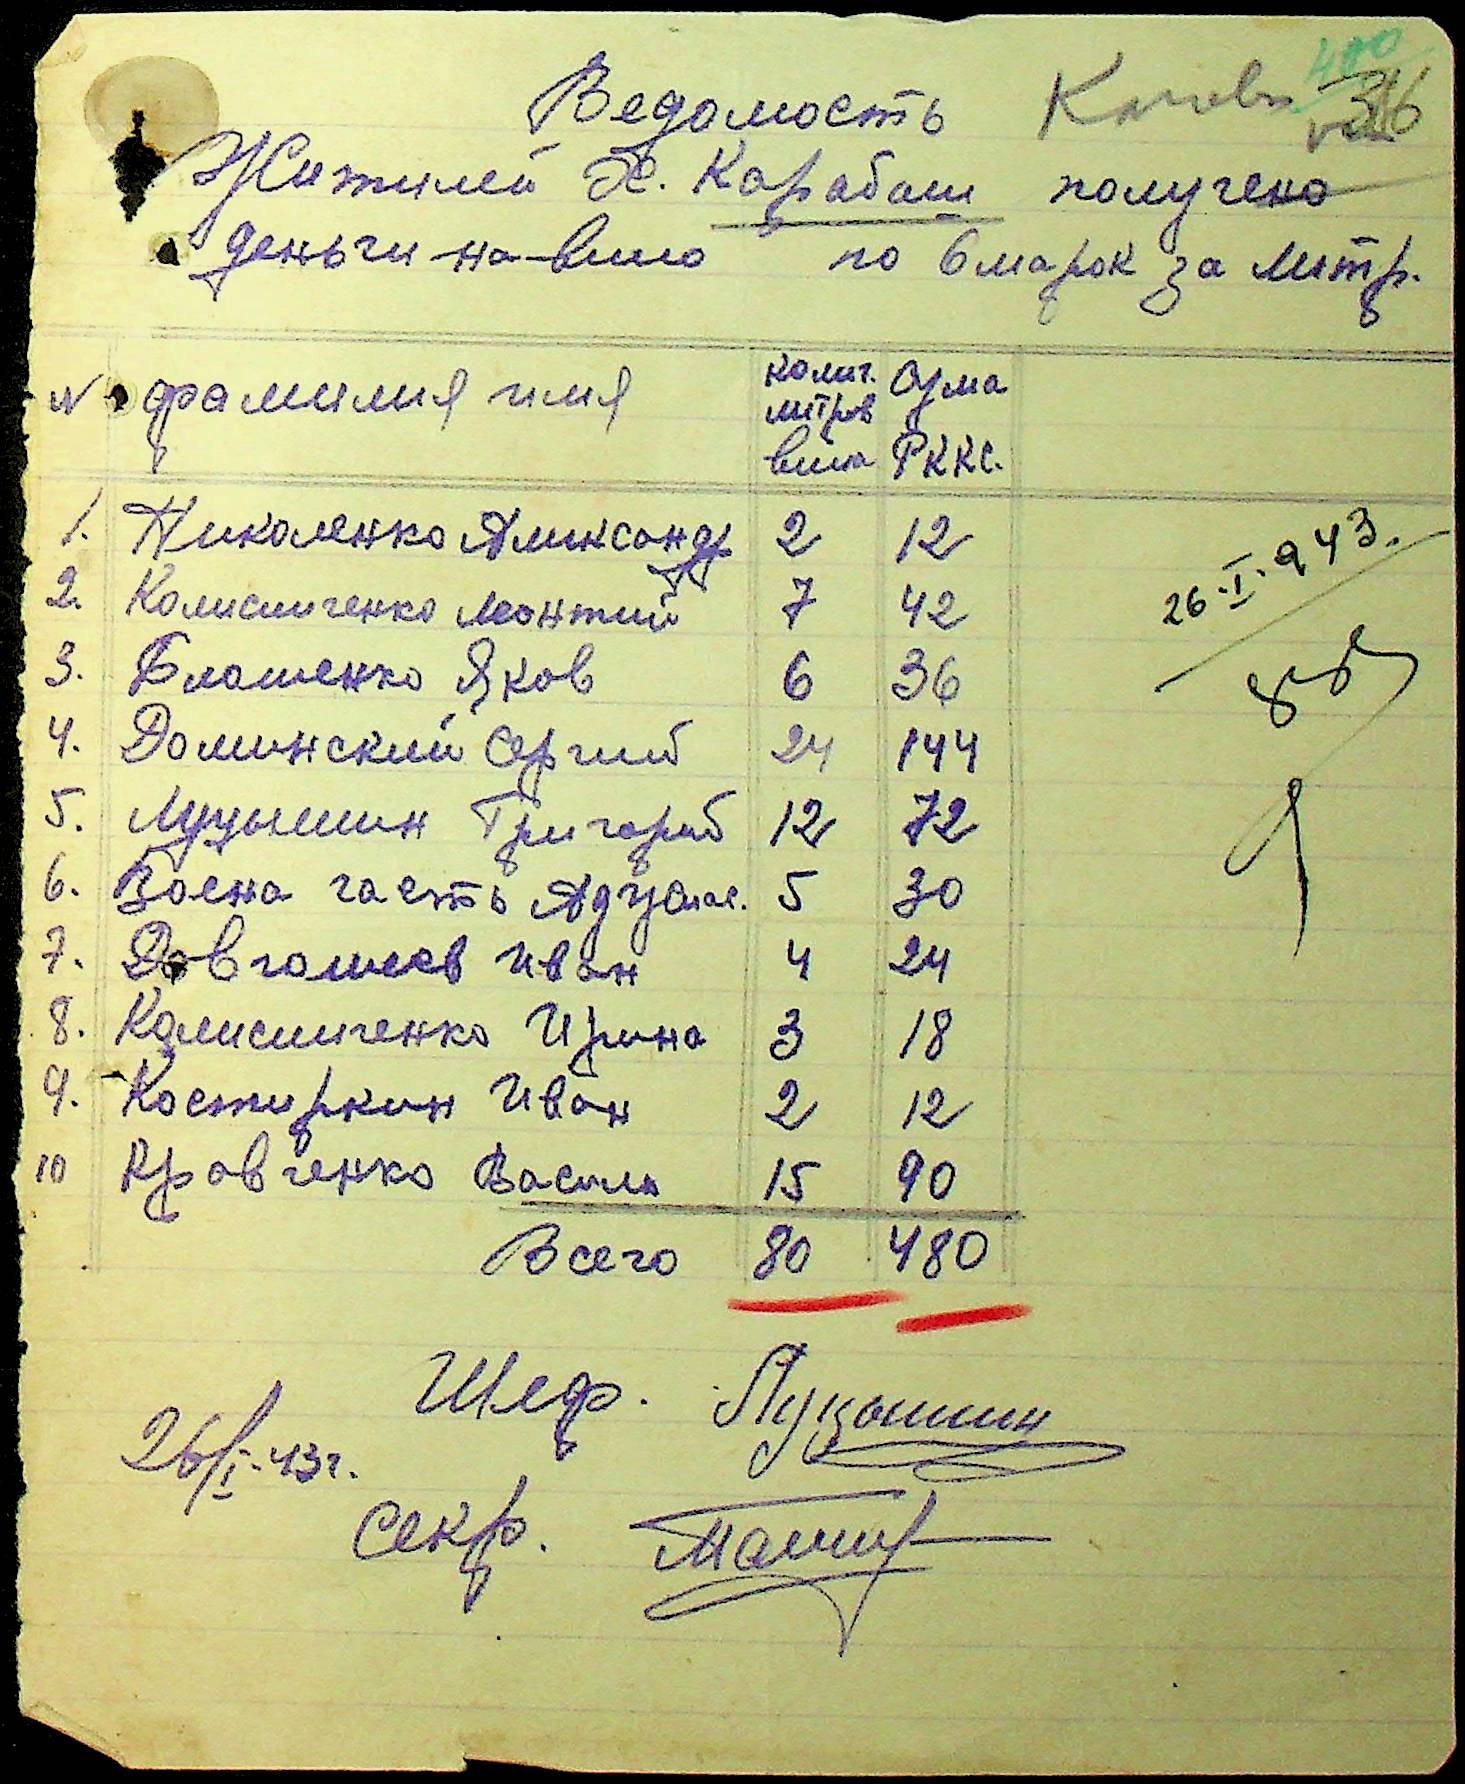 Ведомость
410
Жителей Х. Карабаш получено
деньги на вино по 6 марок за литр.
N фамилия имя колич. литров вина Сума РККС.
1. Николенко Александр 2 12
2. Колисниченко Леонтий 7 42
3. Блошенко Яков 6 36
4. Долинский Сергий 24 144
5. Луцышин Григорий 12 72
6. Воена часть 5 30
7. Довгошеев Иван 4 24
8. Колисниченко Ирина 3 18
9. Костиркин Иван 2 12
10 Кравченко Васили 15 90
Всего 80 480
26.I.943.
Шеф. Луцышин
26/I-43г.
Секр.